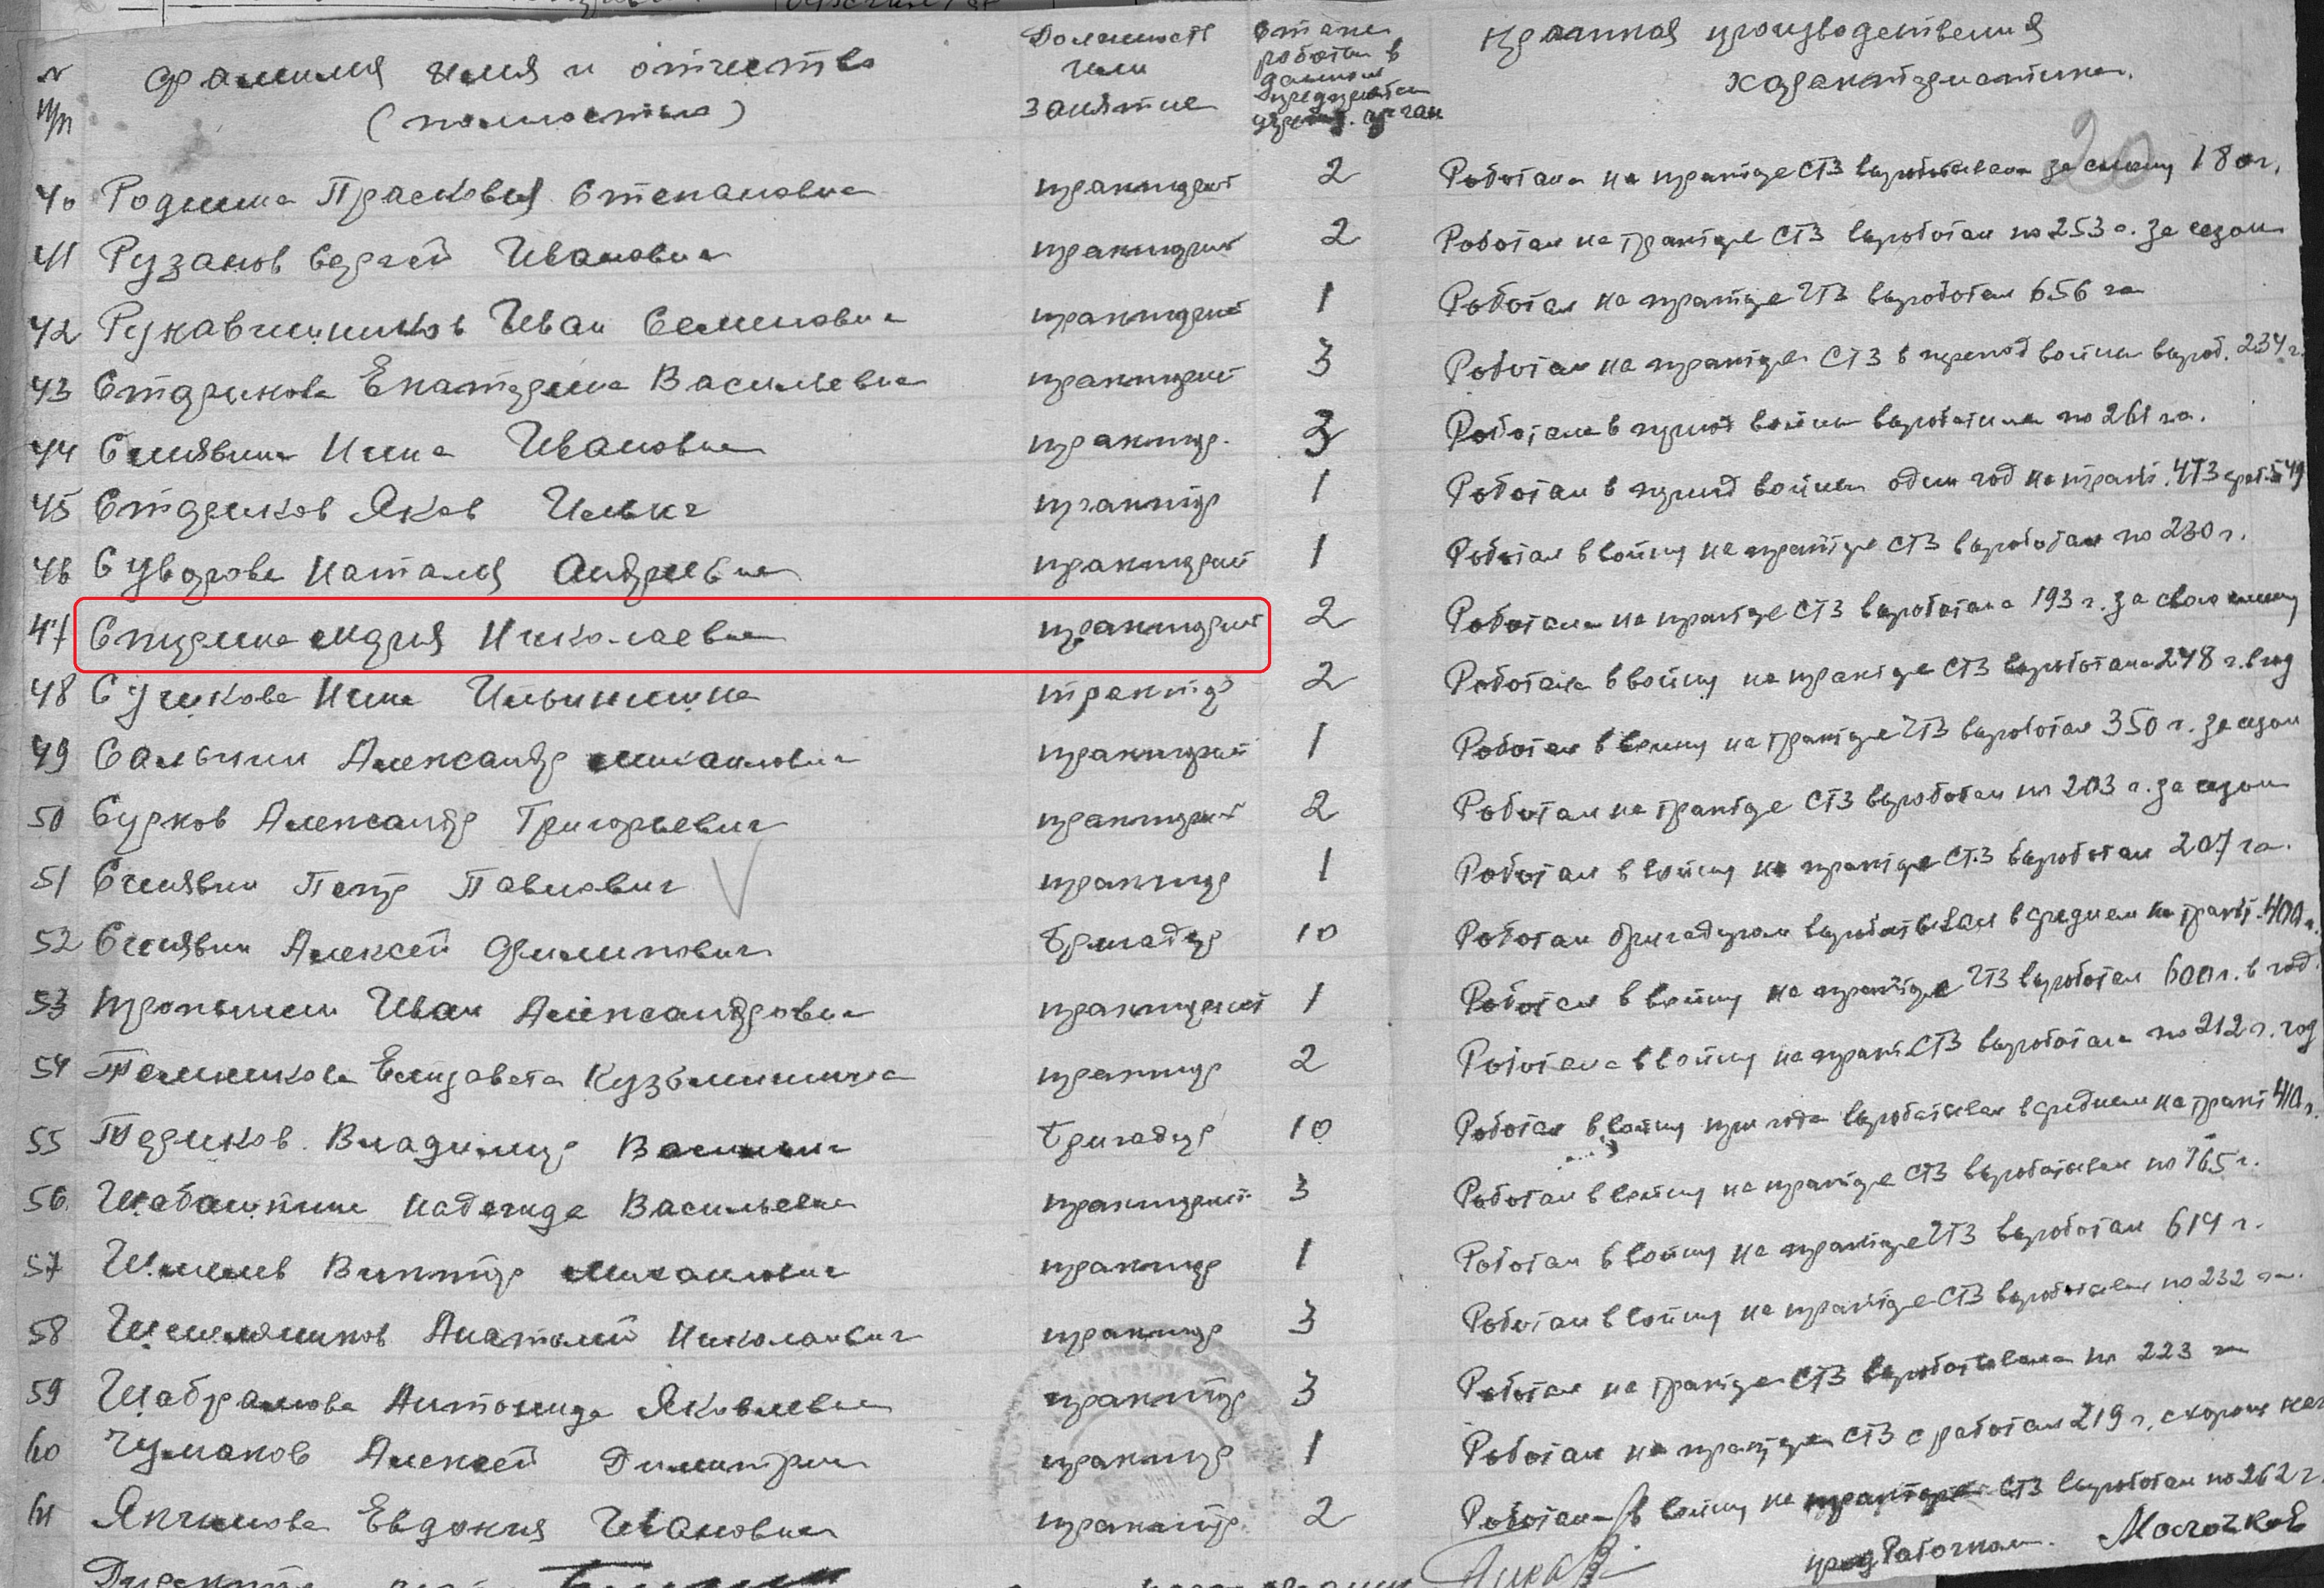 № п/п фамилия имя и отчество (полностью) Должность или занятие Стаж работы в данном предприятии Краткая производственная характеристика.
40 Родина Прасковья Степановна тракторист 2 Работала на тракторе СТЗ вырабатывала за смену 180 г.
41 Рузанов Сергей Иванович тракторист 2 Работал на тракторе СТЗ выработал по 253 г. за сезон
42 Рукавишников Иван Семенович тракторист 1 Работал на тракторе ЧТЗ выработал 656 га
43 Старикова Екатерина Васильевна тракторист 3 Работал на тракторе СТЗ в период войны выраб. 234 г.
44 Синявина Нина Ивановна трактор. 3 Работала в период войны выработала по 261 га.
45 Стариков Яков Ильич трактор 1 Работал в период войны один год на тракт. ЧТЗ
46 Суворова Наталия Андреевна тракторист 1 Работал в войну на тракторе СТЗ выработал по 230 г.
47 Мария Николаевна тракторист 2 Работала на тракторе СТЗ выработала 193 г. за свою смену
48 Сушкова Нина Ильинична трактор 2 Работала в войну на тракторе СТЗ выработала 248 г. в год
49 Сальнин Александр Михайлович тракторист 1 Работал в войну на тракторе ЧТЗ выработал 350 г. за сезон
50 Сурков Александр Григорьевич тракторист 2 Работал на тракторе СТЗ выработал по 203 г. за сезон
51 Синявин Петр Павлович трактор 1 Работал в войну на тракторе СТЗ выработал 207 га.
52 Синявин Алексей Филипович Бригадир 10 Работал бригадиром вырабатывал в среднем на тракт. 400 г.
53 Тропынин Иван Александрович тракторист 1 Работал в войну на тракторе ЧТЗ выработал 600 г. в год
54 Темникова Елизавета Кузьминична трактор 2 Работала в войну на тракт. СТЗ выработала по 212 г. год
55 Владимир Васильич Бригадир 10 Работал в войну три года вырабатывал в среднем на тракт 410 г.
56. Шабашкина Надежда Васильевна тракторист 3 Работал в войну на тракторе СТЗ вырабатывал по 165 г.
57 Виктор Михайлович трактор 1 Работал в войну на тракторе ЧТЗ выработал 619 г.
58 Анатолий Николаевич трактор 3 Работал в войну на тракторе СТЗ вырабатывал по 232 га.
59 Шабрамова Антонида Яковлевна трактор 3 Работал на тракторе СТЗ вырабатывала по 223 га
60 Чумаков Алексей Димитрич трактор 1 Работал на тракторе СТЗ сработал 219 г,
61 Япчинова Евдокия Ивановна трактор. 2 Работала в войну на тракторе СТЗ выработал по 262 г
пред Рабочком. Молочков